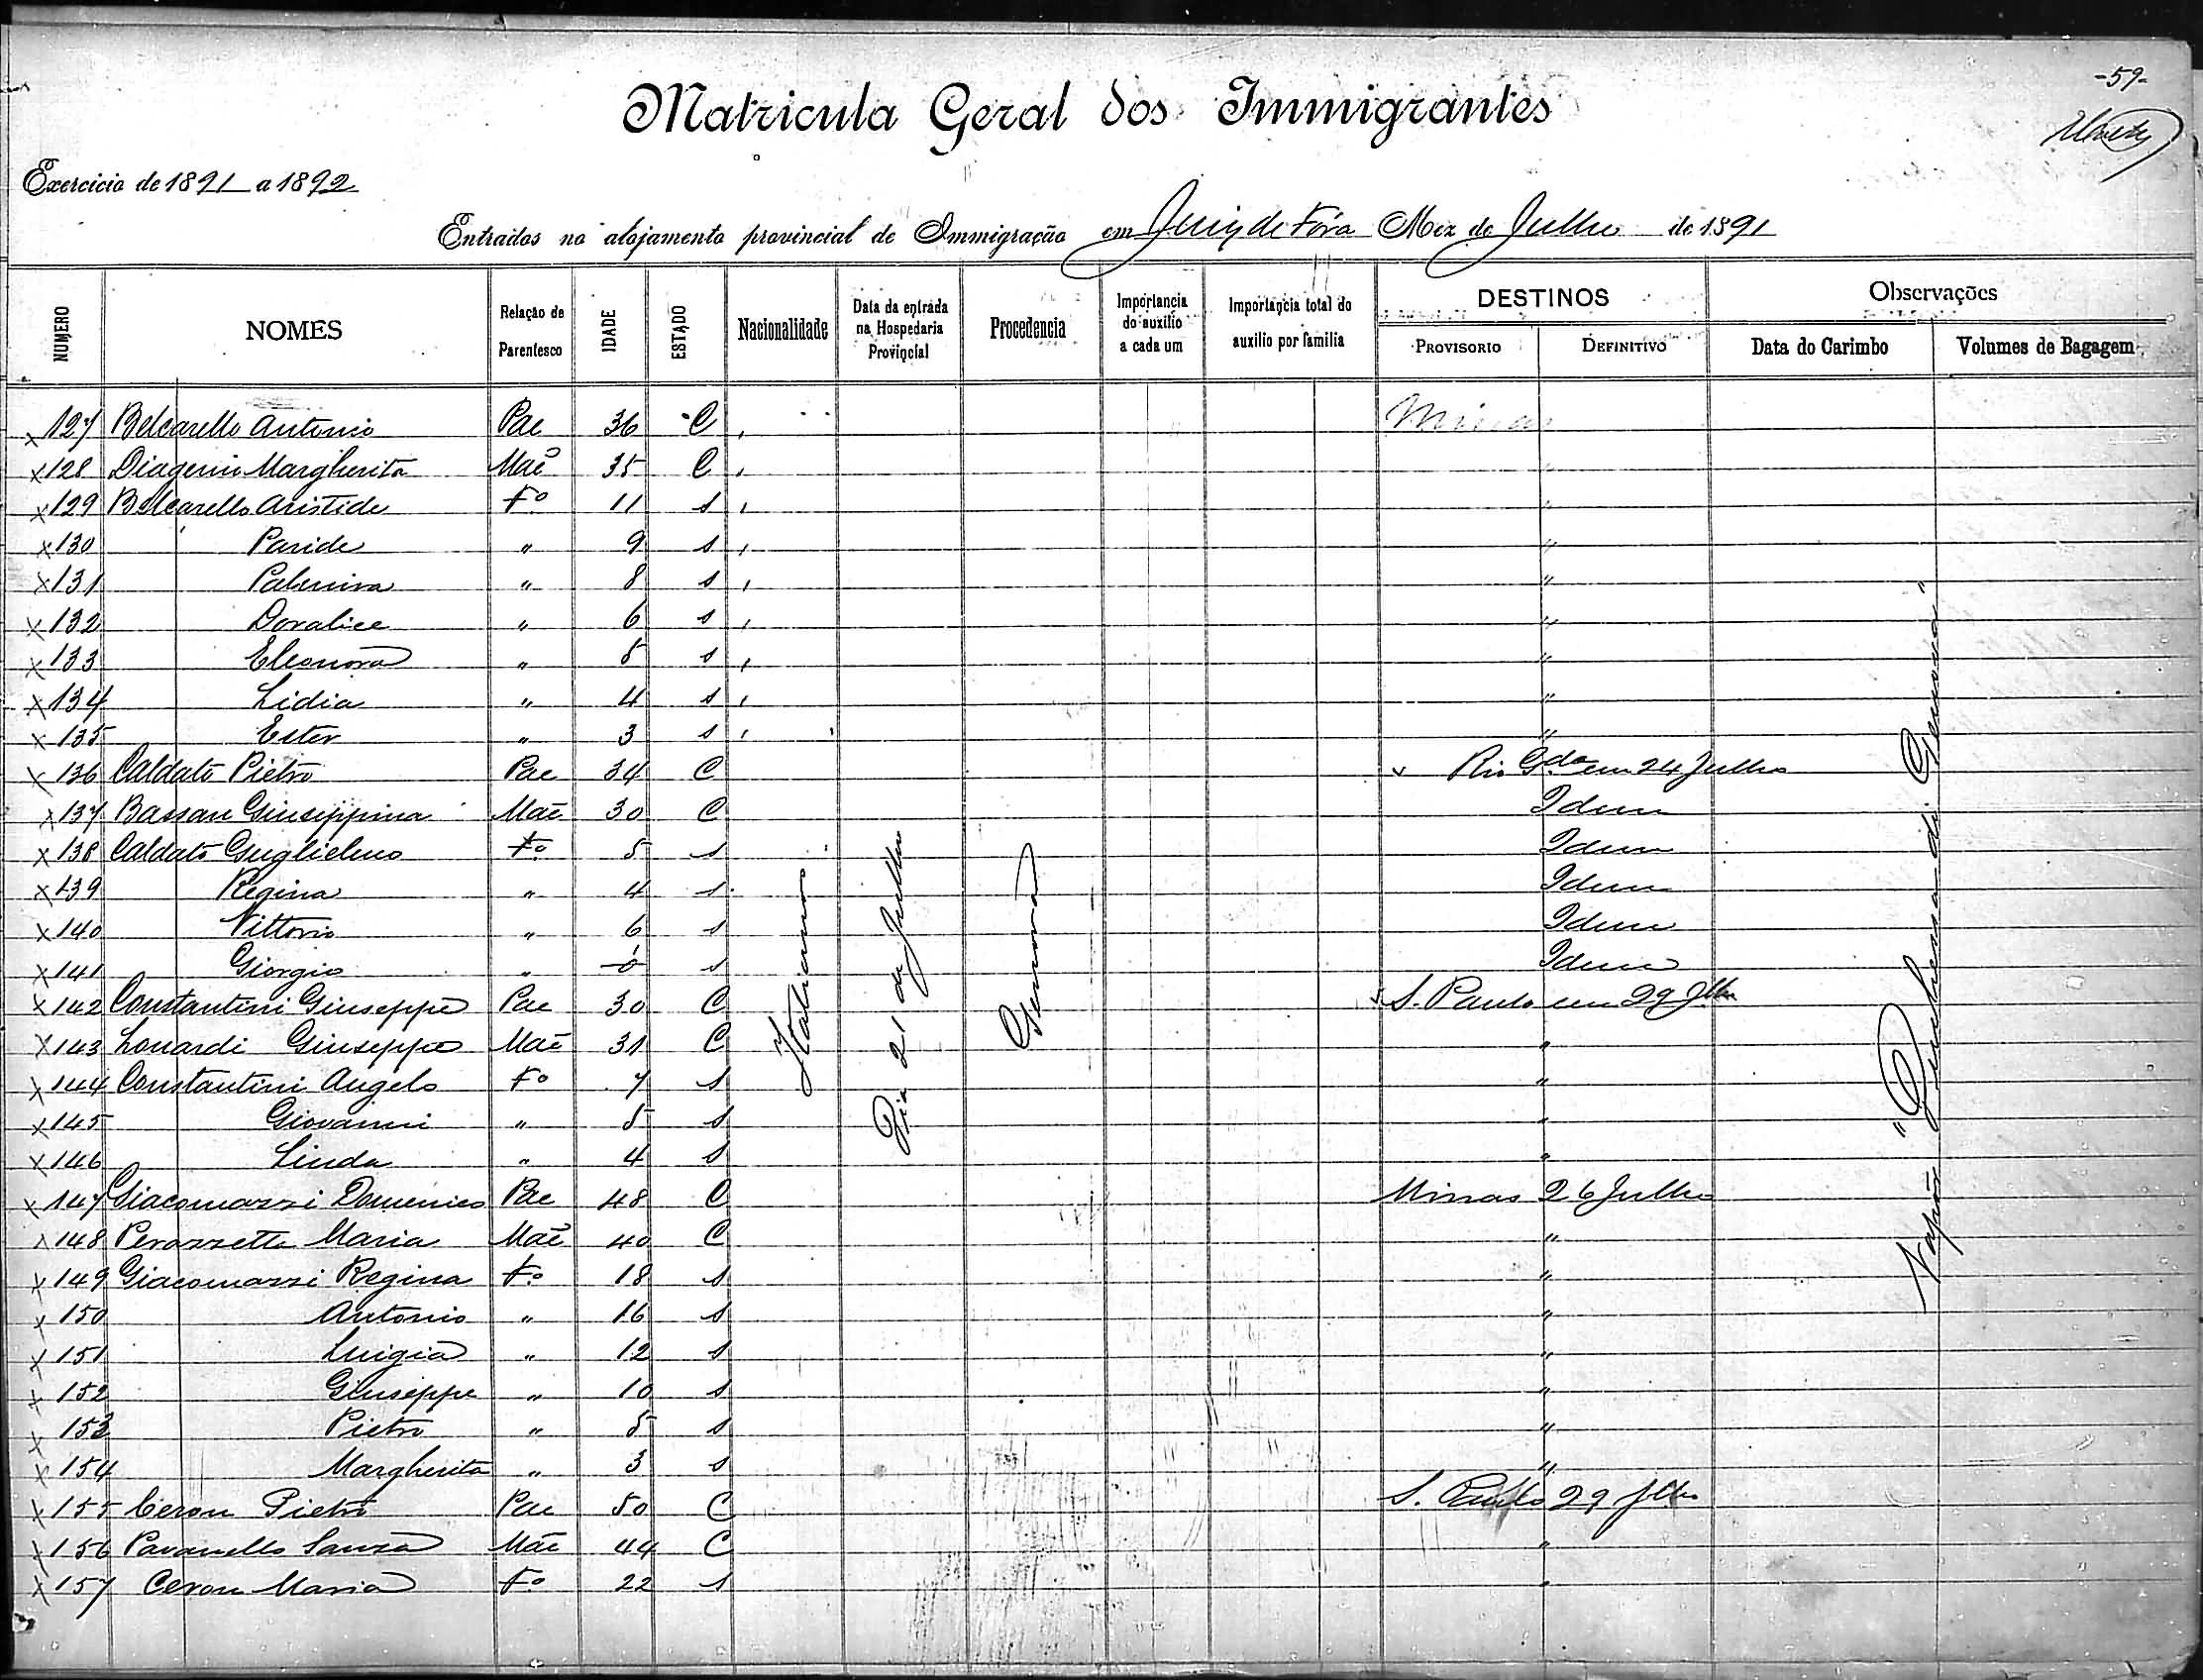 -59-
Matricula Geral dos Immigrantes
Exercicio de 1891 a 1892
Entrados no alojamento provincial de Immigração em Juiz de Fóra Mez de Julho de 1891
NUMERO NOMES Relação de Parentesco IDADE ESTADO Nacionalidade Data da entrada na Hospedaria Provincial Procedencia Importancia do auxilio a cada um Importancia total do auxilio por familia DESTINOS PROVISORIO DEFINITIVO Observações Data do Carimbo Volumes de Bagagem
x 127 Belcarello Antonio Pae 36 C , Minas
x 128 Margherita Mãe 35 C ,
x 129 Belcarello Aristide Fo 11 s , "
x 130 Paride " 9 s , "
x 131 " 8 s , "
x 132 Doralice " 6 s , "
x 133 Eleonora " 5 s , "
x 134 Lidia " 4 s , "
x 135 Ester " 3 s , "
x 136 Caldato Pietro Pae 34 C Rio Gde em 24 Julho
x 137 Bassan Giuseppina Mãe 30 C Idem
x 138 Caldato Guglielmo Fo 5 s Idem
x 139 Regina " 4 s Idem
x 140 Vittorio " 6 s Idem
x 141 Giorgio " s Idem
x 142 Constantini Giuseppe Pae 30 C S. Paulo em 29 Jlho
x 143 Lonardi Giuseppe Mãe 31 C "
x 144 Constantini Angelo Fo 7 s "
x 145 Giovanni " 5 s "
x 146 Linda " 4 s "
x 147 Giacomazzi Domenico Pae 48 C Minas 26 Julho
x 148 Perozzetto Maria Mãe 40 C "
x 149 Giacomazzi Regina Fo 18 s "
x 150 Antonio " 16 s "
x 151 Luigia " 12 s "
x 152 Giuseppe " 10 s "
x 153 Pietro " 5 s "
x 154 Margherita " 3 s "
x 155 Ceron Pietro Pae 50 C S. Paulo 29 Jlho
x 156 Pavanello Mãe 44 C "
x 157 Ceron Maria Fo 22 s "
Italiano
Dia 21 de Julho
Genova
Vapor " di Genova"